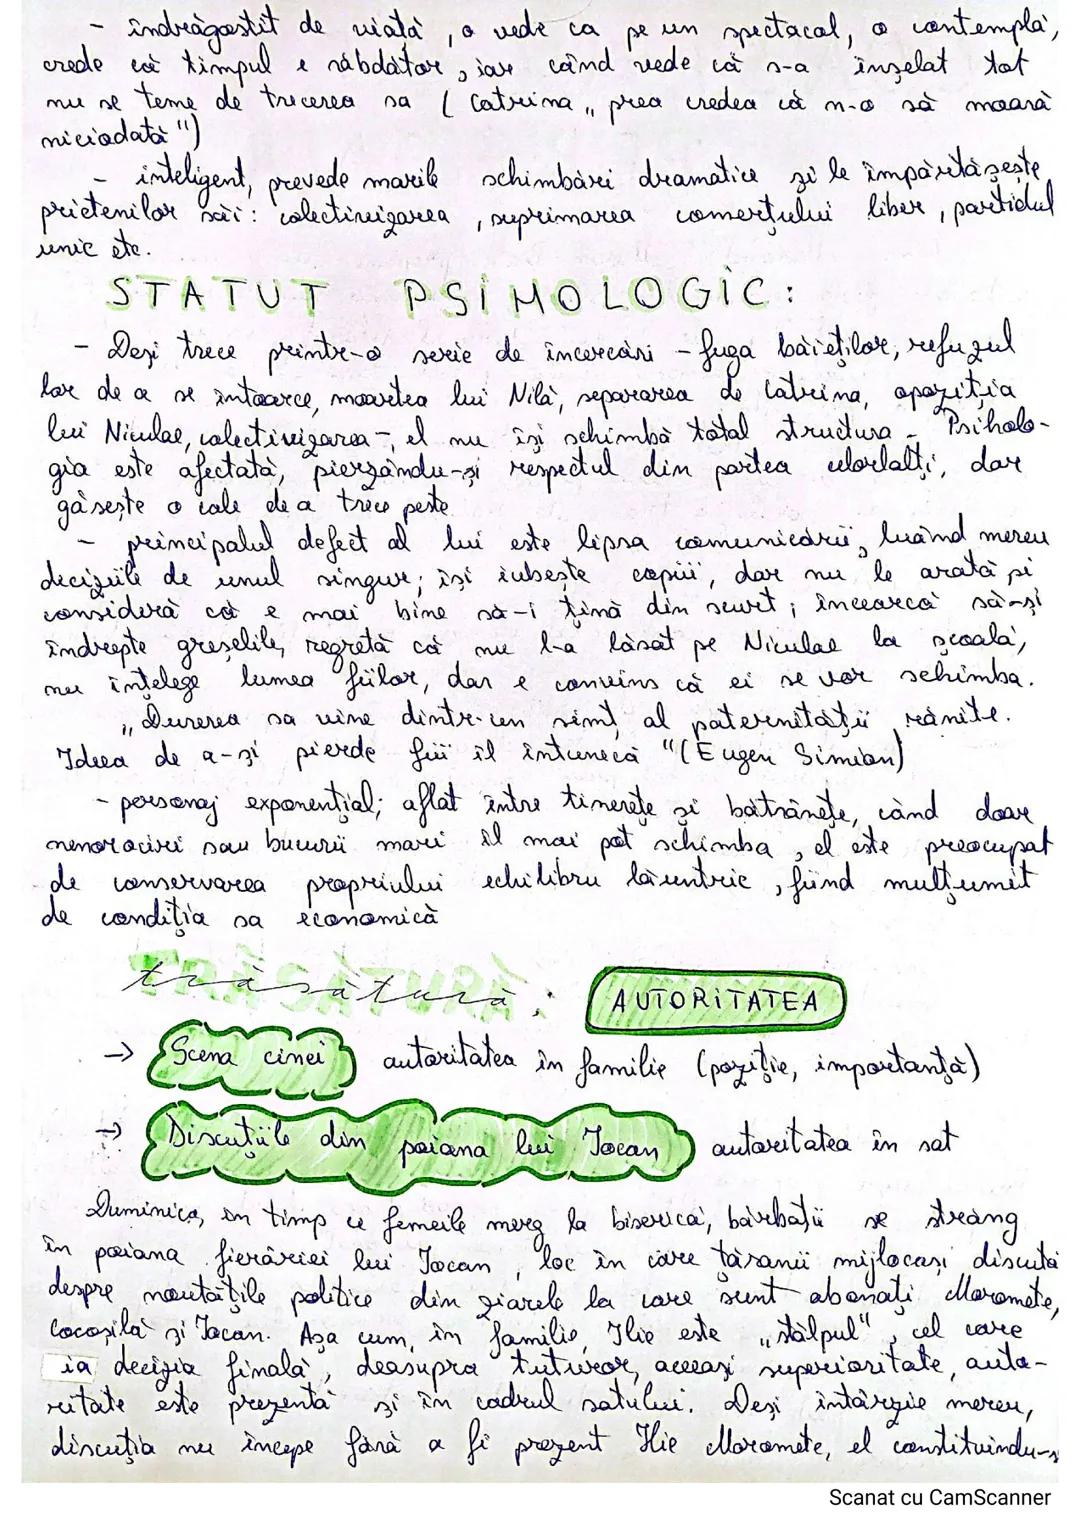 - îndrăgostit de viață, o vede ca pe un spectacol, o contemplă,
crede că timpul e răbdător, iar când vede că s-a înșelat tot
nu se teme de trecerea sa (Catrina „prea credea că n-o să moară
niciodată")
- inteligent, prevede marile schimbări dramatice și le împărtășește
prietenilor săi: colectivizarea, suprimarea comerțului liber, partidul
unic etc.
STATUT PSIHOLOGIC:
- Deși trece printr-o serie de încercări - fuga băieților, refuzul
lor de a se întoarce, moartea lui Nilă, separarea de Catrina, opoziția
lui Niculae, colectivizarea -, el nu își schimbă total structura. Psiholo-
gia este afectată, pierzându-și respectul din partea celorlalți, dar
găsește o cale de a trece peste
- principalul defect al lui este lipsa comunicării, luând mereu
deciziile de unul singur; își iubește copiii, dar nu le arată și
consideră că e mai bine să-i țină din scurt; încearcă să-și
îndrepte greșelile, regretă că nu l-a lăsat pe Niculae la școală,
nu înțelege lumea fiilor, dar e convins că ei se vor schimba.
„Durerea sa vine dintr-un simț al paternității rănite.
Ideea de a-și pierde fiii îl întunecă" (Eugen Simion)
- personaj exponențial; aflat între tinerețe și bătrânețe, când doar
nenorociri sau bucurii mari îl mai pot schimba, el este preocupat
de conservarea propriului echilibru lăuntric, fiind mulțumit
de condiția sa economică
trăsătură: AUTORITATEA
→ Scena cinei autoritatea în familie (poziție, importanță)
→ Discuțiile din poiana lui Iocan autoritatea în sat
Duminica, în timp ce femeile merg la biserică, bărbații se strâng
în poiana fierăriei lui Iocan, loc în care țăranii mijlocași discută
despre noutățile politice din ziarele la care sunt abonați Moromete,
Cocoșilă și Iocan. Așa cum, în familie, Ilie este „stâlpul", cel care
ia decizia finală, deasupra tuturor, aceeași superioritate, auto-
ritate este prezentă și în cadrul satului. Deși întârzie mereu,
discuția nu începe fără a fi prezent Ilie Moromete, el constituindu-s
Scanat cu CamScanner